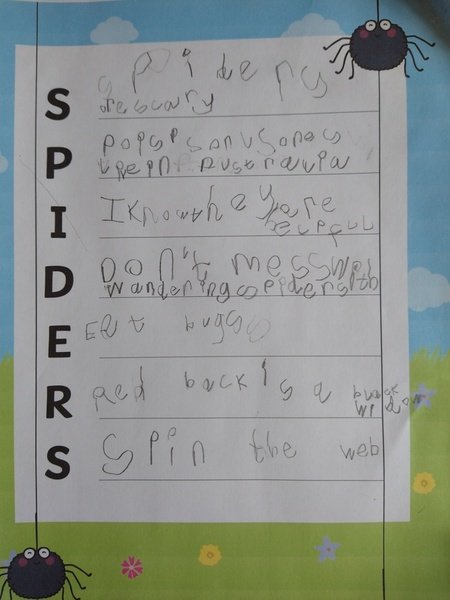 S
spiders
are scary
P
poisonous ones
live in Australia
I
I know they are
helpful
D
Don't mess with
wandering spiders
E
Eat bugs
R
Red back is a black
widow
S
Spin the web